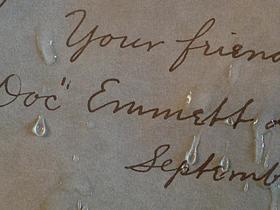 Your frien
Doc" Emmett
Septemb